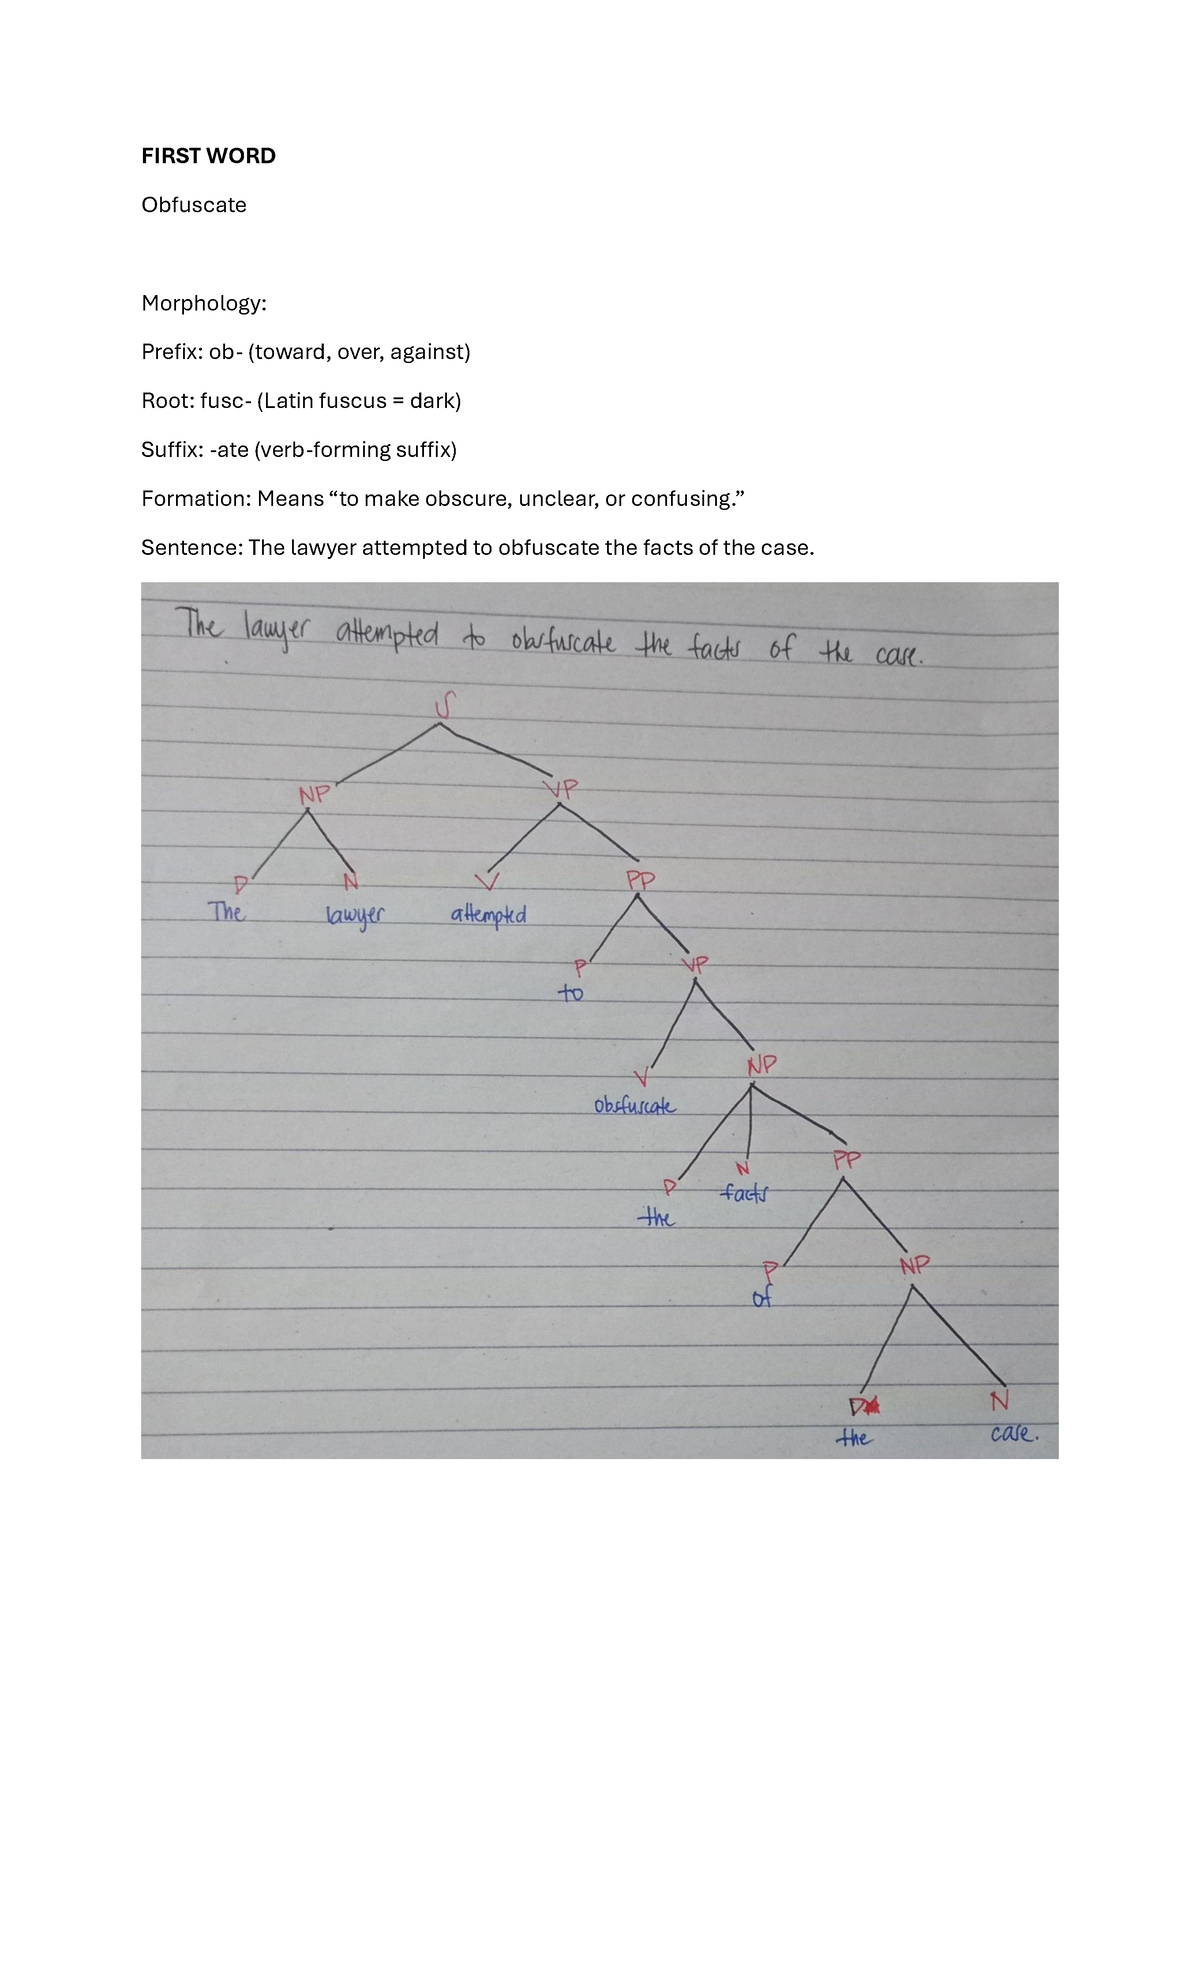 FIRST WORD
Obfuscate
Morphology:
Prefix: ob- (toward, over, against)
Root: fusc- (Latin fuscus = dark)
Suffix: -ate (verb-forming suffix)
Formation: Means “to make obscure, unclear, or confusing.”
Sentence: The lawyer attempted to obfuscate the facts of the case.
The lawyer attempted to obsfuscate the facts of the case.
S
NP VP
D N V PP
The lawyer attempted
P VP
to
V NP
obsfuscate
D N PP
the facts
P NP
of
D N
the case.